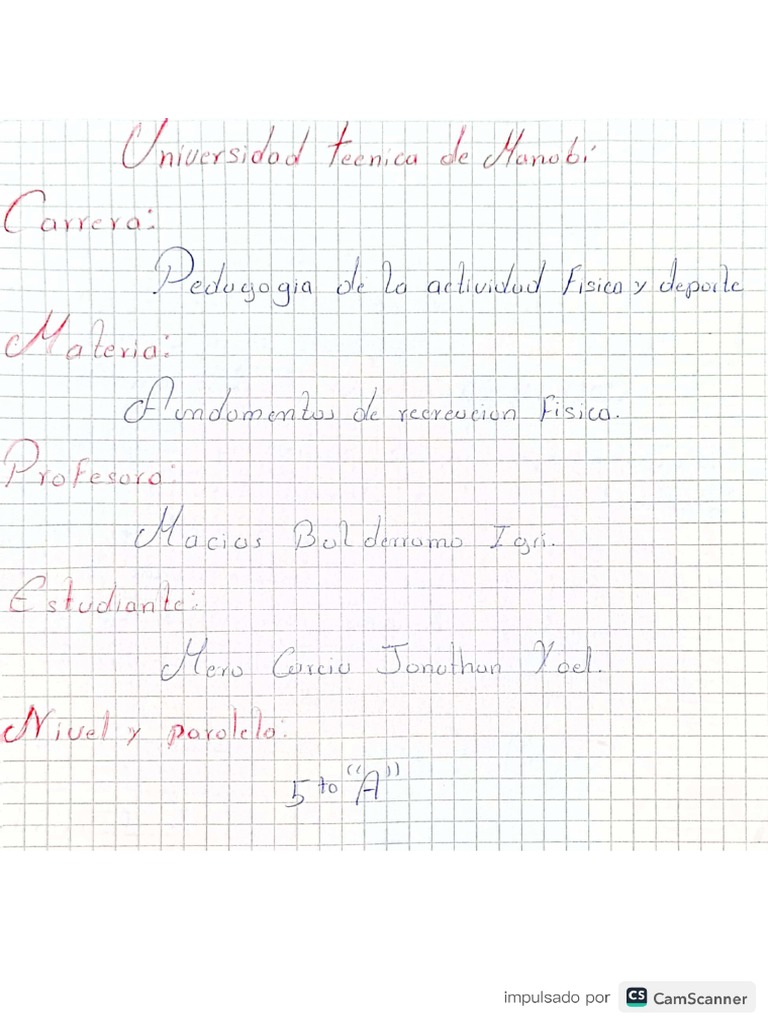 Universidad tecnica de Manabí
Carrera:
Pedagogia de la actividad Fisica y deporte
Materia:
Fundamentos de recreacion Fisica.
Profesora:
Macias Balderramo Igri.
Estudiante:
Mero Garcia Jonathan Yoel.
Nivel y paralelo:
5to "A"
impulsado por CS CamScanner